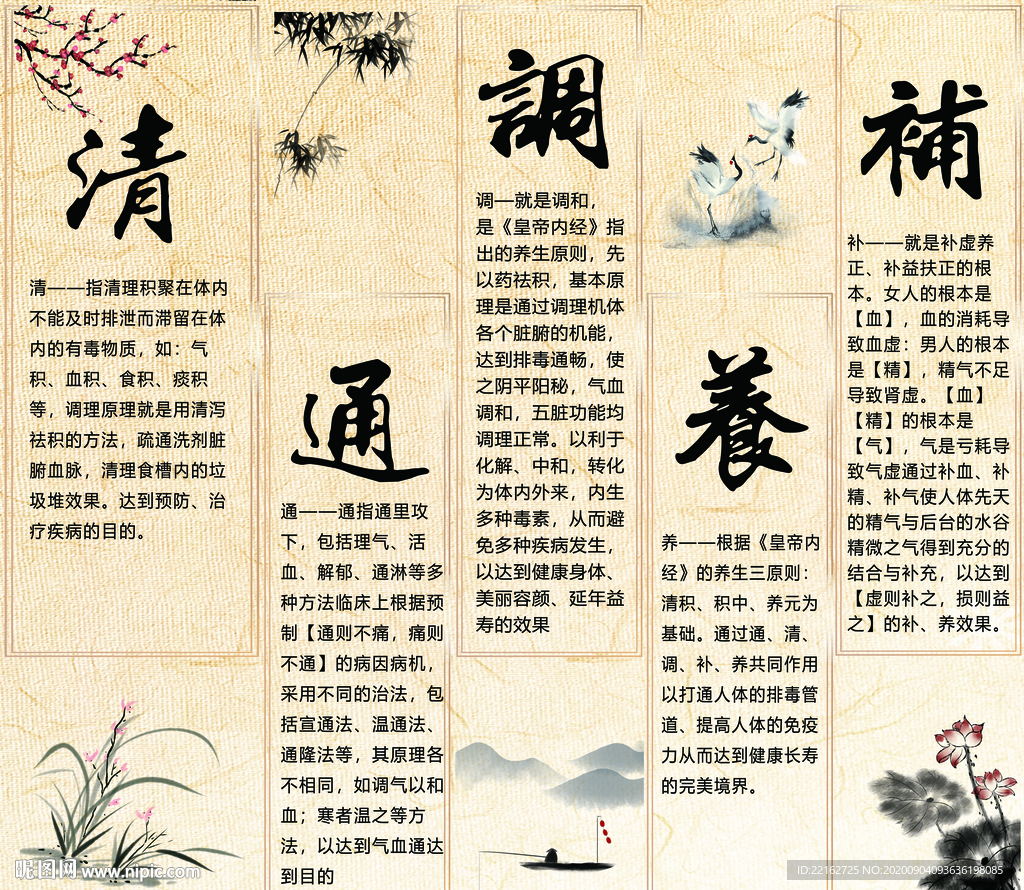 清
清——指清理积聚在体内
不能及时排泄而滞留在体
内的有毒物质，如：气
积、血积、食积、痰积
等，调理原理就是用清泻
祛积的方法，疏通洗剂脏
腑血脉，清理食槽内的垃
圾堆效果。达到预防、治
疗疾病的目的。
通
通——通指通里攻
下，包括理气、活
血、解郁、通淋等多
种方法临床上根据预
制【通则不痛，痛则
不通】的病因病机，
采用不同的治法，包
括宣通法、温通法、
通隆法等，其原理各
不相同，如调气以和
血；寒者温之等方
法，以达到气血通达
到目的
調
调—就是调和，
是《皇帝内经》指
出的养生原则，先
以药祛积，基本原
理是通过调理机体
各个脏腑的机能，
达到排毒通畅，使
之阴平阳秘，气血
调和，五脏功能均
调理正常。以利于
化解、中和，转化
为体内外来，内生
多种毒素，从而避
免多种疾病发生，
以达到健康身体、
美丽容颜、延年益
寿的效果
養
养——根据《皇帝内
经》的养生三原则：
清积、积中、养元为
基础。通过通、清、
调、补、养共同作用
以打通人体的排毒管
道、提高人体的免疫
力从而达到健康长寿
的完美境界。
補
补——就是补虚养
正、补益扶正的根
本。女人的根本是
【血】，血的消耗导
致血虚：男人的根本
是【精】，精气不足
导致肾虚。【血】
【精】的根本是
【气】，气是亏耗导
致气虚通过补血、补
精、补气使人体先天
的精气与后台的水谷
精微之气得到充分的
结合与补充，以达到
【虚则补之，损则益
之】的补、养效果。
昵图网 www.nipic.com
ID:22162725 NO:20200904093636198085